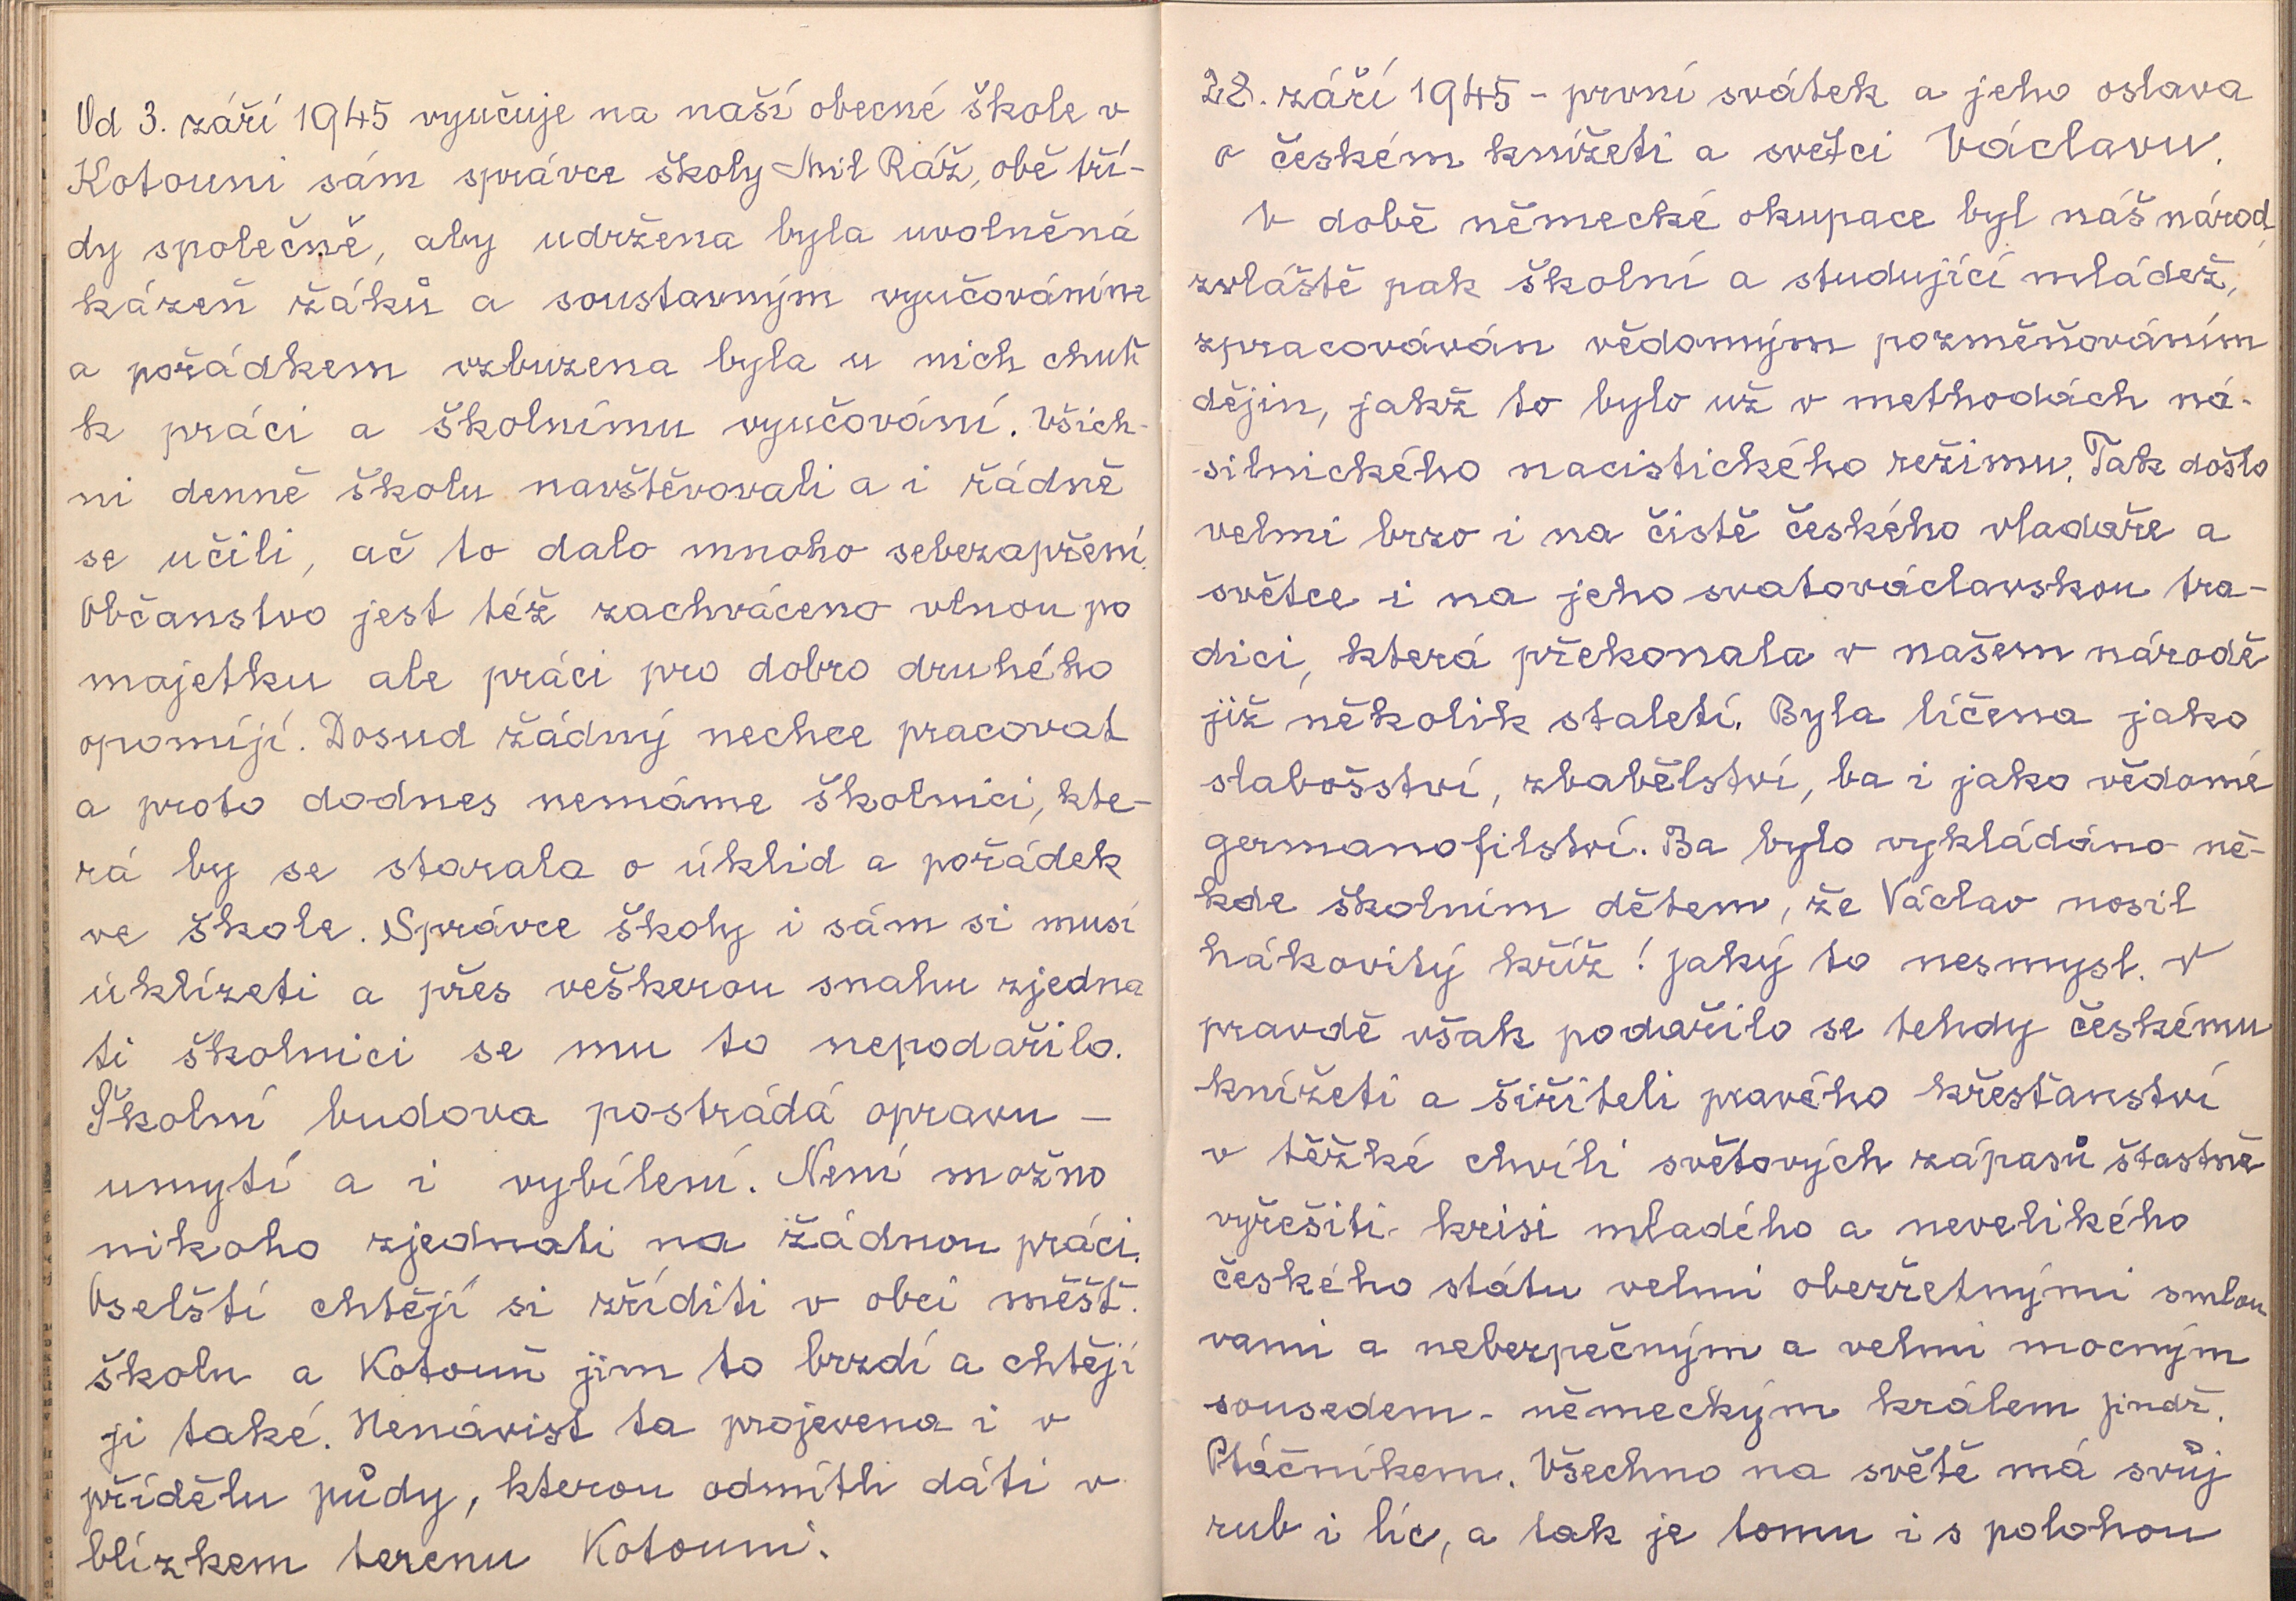 Od 3. září 1945 vyučuje na naší obecné škole v
Kotouni sám správce školy Mil Ráž, obě tří-
dy společně, aby udržena byla uvolněná
kázeň žáků a soustavným vyučováním
a pořádkem vzbuzena byla u nich chuť
k práci a školnímu vyučování. Všich-
ni denně školu navštěvovali a i řádně
se učili, ač to dalo mnoho sebezapření.
Občanstvo jest též zachváceno vlnou po
majetku ale práci pro dobro druhého
opomíjí. Dosud žádný nechce pracovat
a proto dodnes nemáme školnici, kte-
rá by se starala o úklid a pořádek
ve škole. Správce školy i sám si musí
úklízeti a přes veškerou snahu zjedna
ti školnici se mu to nepodařilo.
Školní budova postrádá opravu -
umytí a i vybílení. Není možno
nikoho zjednati na žádnou práci.
Oselští chtějí si zříditi v obci měšť.
školu a Kotouň jim to brzdí a chtějí
ji také. Nenávist ta projevena i v
přídělu půdy, kterou odmítli dáti v
blízkem terenu Kotouni.
28. září 1945 - první svátek a jeho oslava
o českém knížeti a světci Václavu.
V době německé okupace byl náš národ,
zvláště pak školní a studující mládež,
zpracováván vědomým pozměňováním
dějin, jakž to bylo už v methodách ná-
silnického nacistického režimu. Tak došlo
velmi brzo i na čistě českého vladaře a
světce i na jeho svatováclavskou tra-
dici, která překonala v našem národě
již několik staletí. Byla líčena jako
slabošství, zbabělství, ba i jako vědomé
germanofilství. Ba bylo vykládáno ně-
kde školním dětem, že Václav nosil
hákovitý kříž! Jaký to nesmysl. V
pravdě však podařilo se tehdy českému
knížeti a šiřiteli pravého křesťanství
v těžké chvíli světových zápasů šťastně
vyřešiti krisi mladého a nevelikého
českého státu velmi obezřetnými smlou
vami a nebezpečným a velmi mocným
sousedem - německým králem Jindř.
Ptáčníkem. Všechno na světě má svůj
rub i líc, a tak je tomu i s polohou